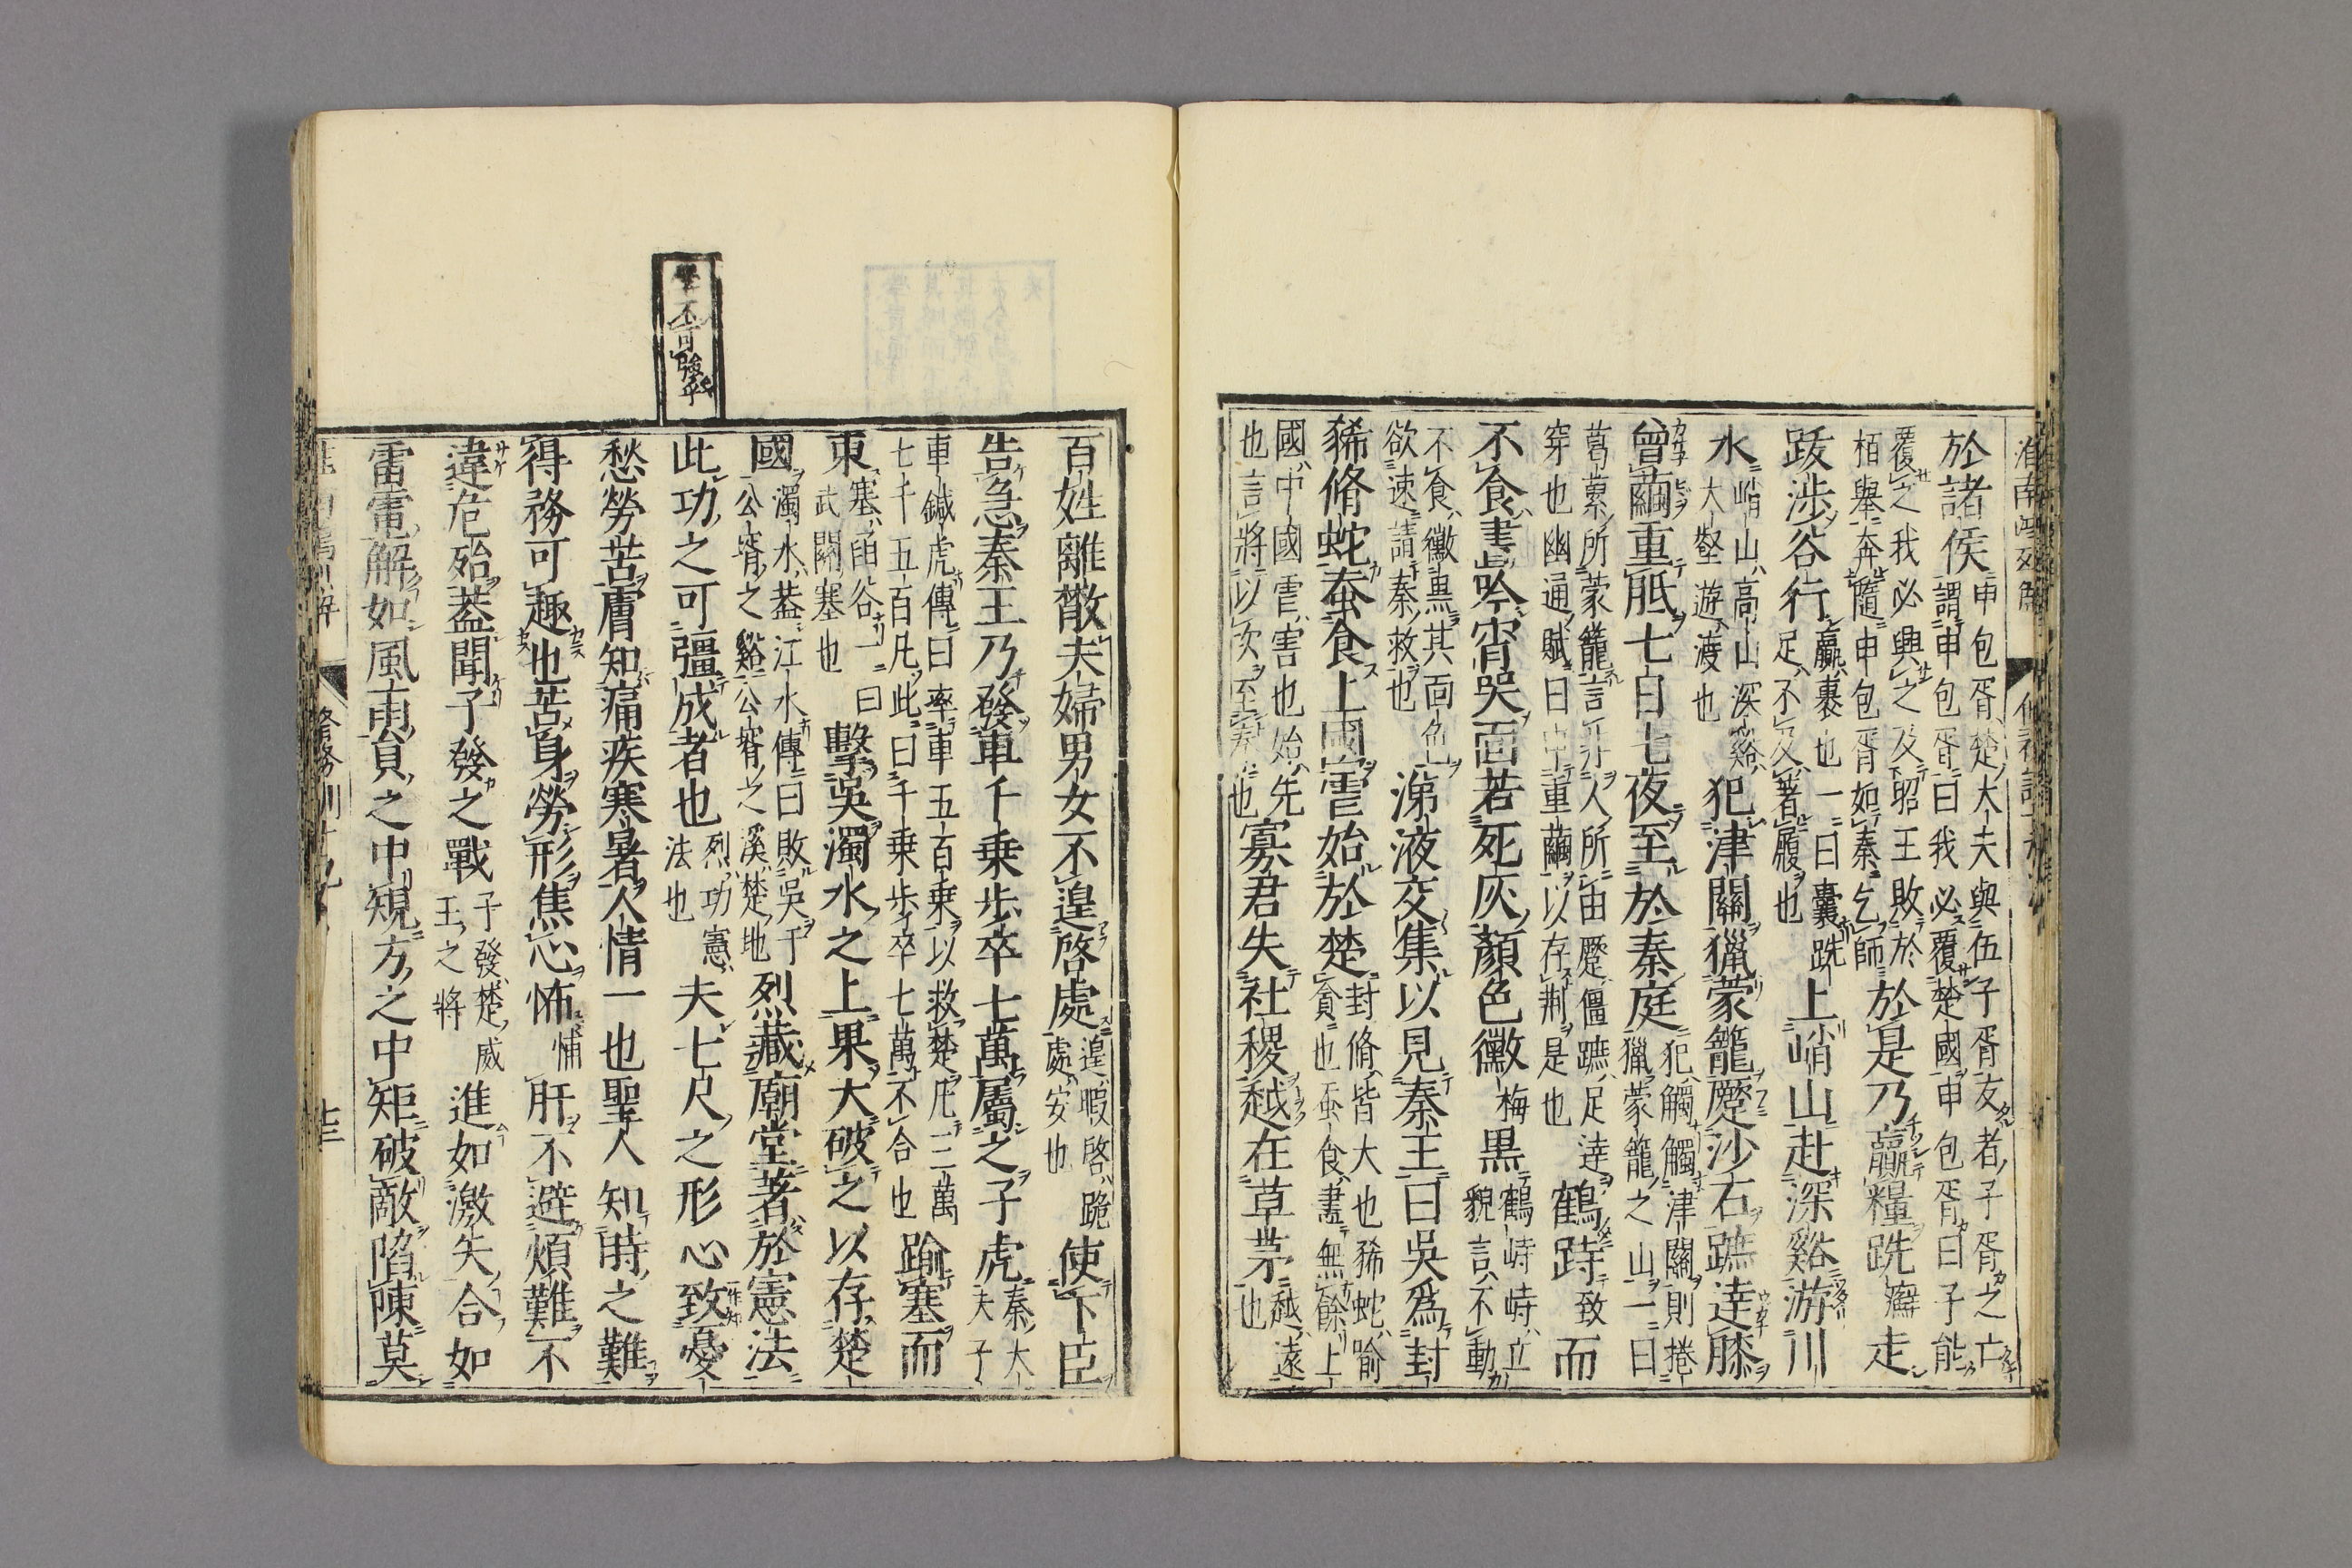 於諸侯申包胥楚大夫與伍子胥友者子胥之亡謂申包胥曰我必覆楚國申包胥曰子能
覆之我必興之及昭王敗於栢舉奔隨申包胥如秦乞師於是乃贏糧跣走
跋渉谷行贏裹也一曰囊跣足不及著履也上峭山赴深谿游川
水峭山高山深谿大壑游渡也犯津關獵蒙籠蹷沙石蹠達膝
曾繭重胝七日七夜至於秦庭犯觸觸津關則捲獵蒙籠之山一曰
葛蔂所蒙籠言非人所由蹷僵蹠足達穿也幽通賦曰申重繭以存荆是也鶴跱致而
不食晝吟宵哭面若死灰顏色黴梅黒鶴跱跱立貌言不動
不食黴黒其面色欲速請秦救也涕液交集以見秦王曰吳爲封
豨脩蛇蚕食上國虐始於楚封脩皆大也豨蛇喻貪也蚕食盡無餘上
國中國虐害也始先也言將以次至秦也寡君失社稷越在草茅越遠也
百姓離散夫婦男女不遑啓處遑暇啓跪處安也使下臣
告急秦王乃發車千乗歩卒七萬屬之子虎秦大夫子
車鍼虎傳曰率車五百乗以救楚凡三萬七千五百凡此曰千乗歩卒七萬不合也踰塞而
東塞函谷一曰武關塞也擊吳濁水之上果大破之以存楚
國濁水葢江水傳曰敗吳于公壻之谿公壻之溪楚地烈藏廟堂著於憲法
此功之可彊成者也烈功憲法也夫七尺之形心致憂
愁勞苦膚知痛疾寒暑人情一也聖人知時之難
得務可趣也苦身勞形焦心怖悑肝不避煩難不
違危殆葢聞子發之戰子發楚威王之將進如激矢合如
雷電解如風雨員之中規方之中矩破敵陷陳莫